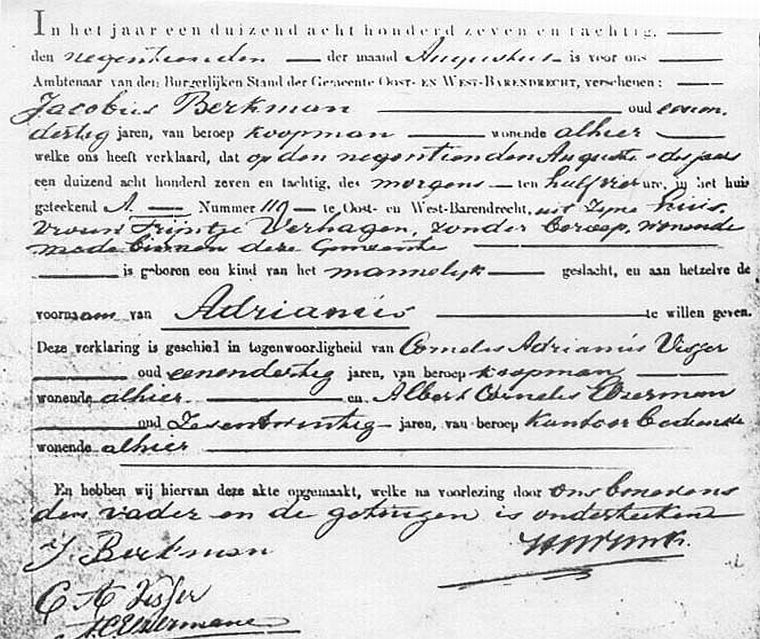 In het jaar een duizend acht honderd zeven en tachtig,
den negentienden der maand Augustus is voor ons
Ambtenaar van den Burgerlijken Stand der Gemeente OOST- EN WEST-BARENDRECHT, verschenen:
Jacobus Berkman oud eenen
dertig jaren, van beroep koopman wonende alhier
welke ons heeft verklaard, dat op den negentienden Augustus des jaars
een duizend acht honderd zeven en tachtig, des morgens ten half vier ure, in het huis
geteekend A. Nummer 119 te Oost- en West-Barendrecht, uit zijne huis-
vrouw Trijntje Verhagen, zonder beroep, wonende
mede binnen deze Gemeente
is geboren een kind van het mannelijk geslacht, en aan hetzelve de
voornaam van Adrianus te willen geven.
Deze verklaring is geschied in tegenwoordigheid van Cornelis Adrianus Visser
oud eenendertig jaren, van beroep koopman
wonende alhier en Albert Cornelis
oud zesentwintig jaren, van beroep kantoorbediende
wonende alhier
En hebben wij hiervan deze akte opgemaakt, welke na voorlezing door ons benevens
den vader en de getuigen is onderteekend
J. Berkman
C A Visser